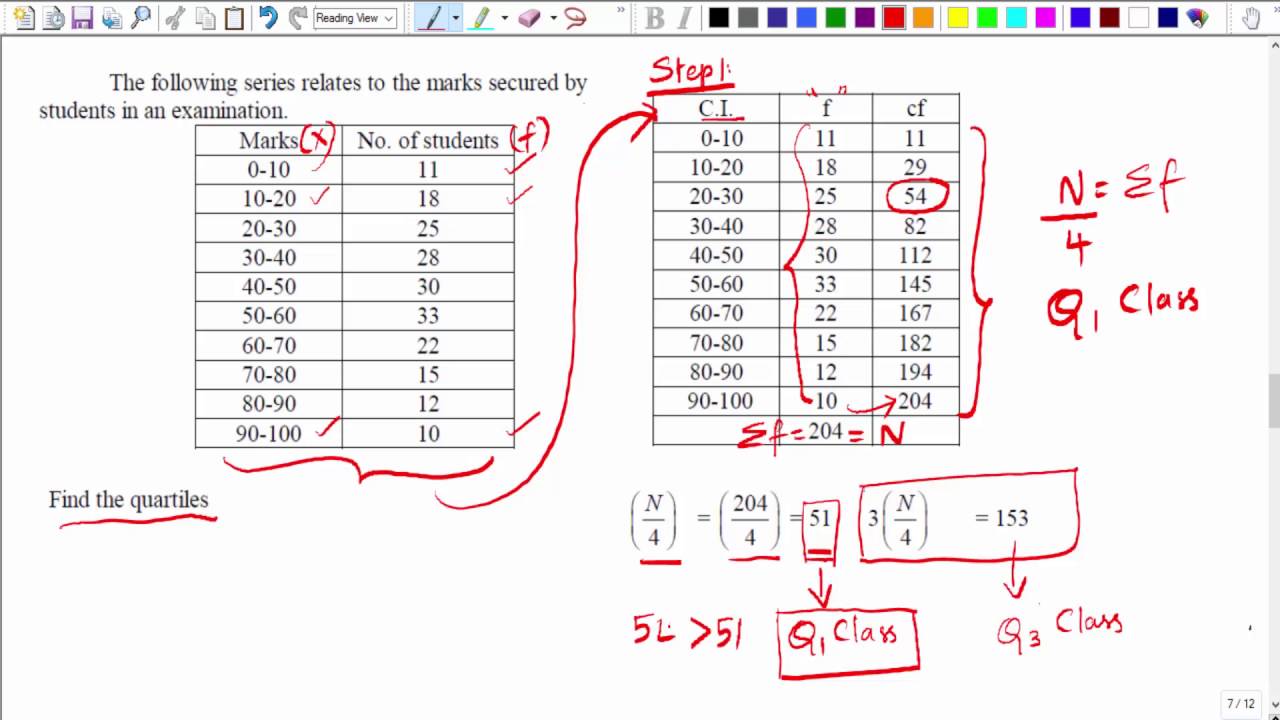 Reading View
B I
The following series relates to the marks secured by
students in an examination.
Marks (x) No. of students (f)
0-10 11
10-20 18
20-30 25
30-40 28
40-50 30
50-60 33
60-70 22
70-80 15
80-90 12
90-100 10
Find the quartiles
Step1:
C.I. "f" cf
0-10 11 11
10-20 18 29
20-30 25 54
30-40 28 82
40-50 30 112
50-60 33 145
60-70 22 167
70-80 15 182
80-90 12 194
90-100 10 204
Σf = 204 = N
N = Σf
4
Q1 Class
(N/4) = (204/4) = 51 3(N/4) = 153
> 51
Q1 Class
Q3 Class
7 / 12